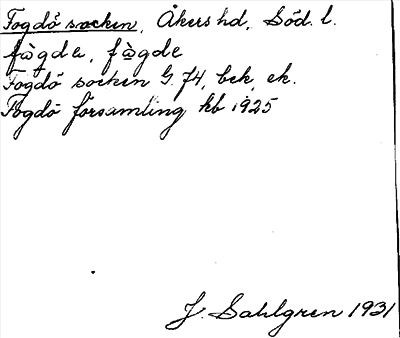 Fogdö socken, Åkers hd, Söd. l.
fò̀gde, fò̀gde
Fogdö socken G. 74, bek, ek.
Fogdö församling kb 1925
J. Sahlgren 1931